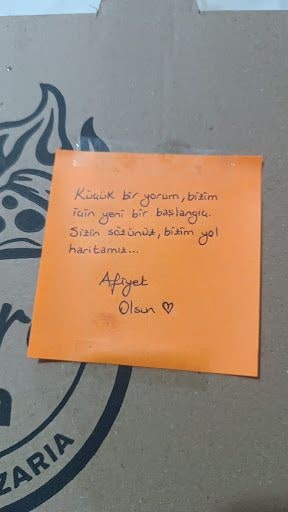 Küçük bir yorum, bizim
için yeni bir başlangıç.
Sizin sözünüz, bizim yol
haritamız...
Afiyet
Olsun ♡
ZARIA